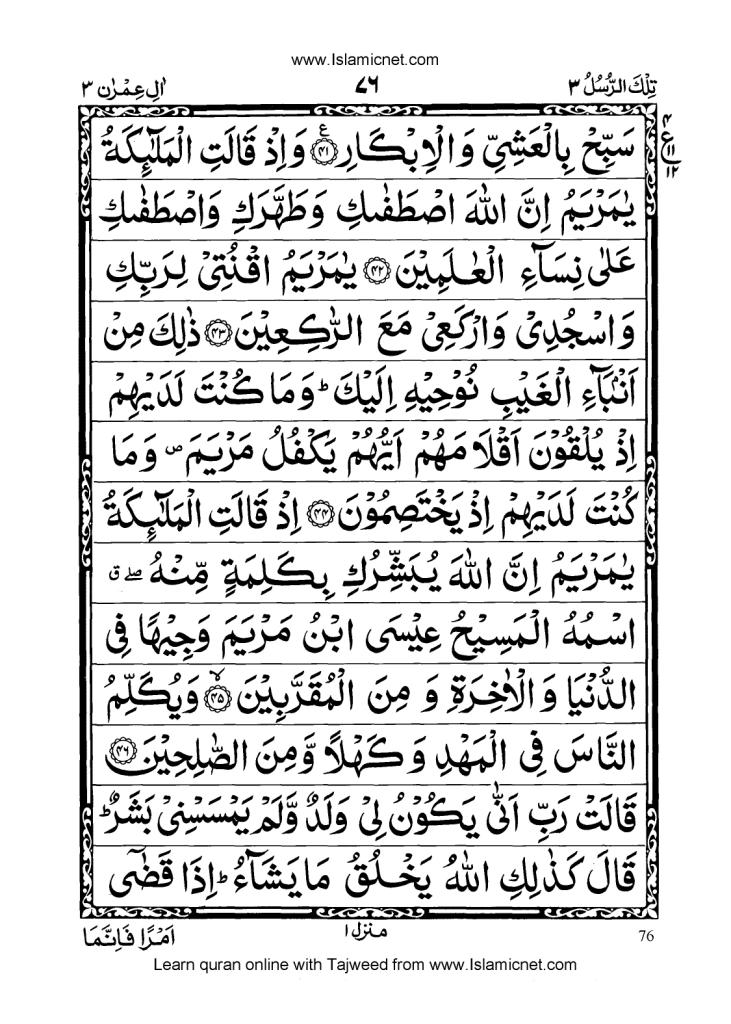 www.Islamicnet.com
تِلْكَ الرُّسُلُ ٣ ٧٦ اٰلِ عِمْرٰن ٣
سَبِّحْ بِالْعَشِيِّ وَالْاِبْكَارِ ﴿٤١﴾ ع وَاِذْ قَالَتِ الْمَلٰٓئِكَةُ
٤ ع ١١ ١٢
يٰمَرْيَمُ اِنَّ اللّٰهَ اصْطَفٰىكِ وَطَهَّرَكِ وَاصْطَفٰىكِ
عَلٰى نِسَآءِ الْعٰلَمِيْنَ ﴿٤٢﴾ يٰمَرْيَمُ اقْنُتِيْ لِرَبِّكِ
وَاسْجُدِيْ وَارْكَعِيْ مَعَ الرّٰكِعِيْنَ ﴿٤٣﴾ ذٰلِكَ مِنْ
اَنْۢبَآءِ الْغَيْبِ نُوْحِيْهِ اِلَيْكَ ؕ وَمَا كُنْتَ لَدَيْهِمْ
اِذْ يُلْقُوْنَ اَقْلَامَهُمْ اَيُّهُمْ يَكْفُلُ مَرْيَمَ ۪ وَمَا
كُنْتَ لَدَيْهِمْ اِذْ يَخْتَصِمُوْنَ ﴿٤٤﴾ اِذْ قَالَتِ الْمَلٰٓئِكَةُ
يٰمَرْيَمُ اِنَّ اللّٰهَ يُبَشِّرُكِ بِكَلِمَةٍ مِّنْهُ ۖ ق
اسْمُهُ الْمَسِيْحُ عِيْسَى ابْنُ مَرْيَمَ وَجِيْهًا فِي
الدُّنْيَا وَالْاٰخِرَةِ وَمِنَ الْمُقَرَّبِيْنَ ﴿٤٥﴾ وَيُكَلِّمُ
النَّاسَ فِي الْمَهْدِ وَكَهْلًا وَّمِنَ الصّٰلِحِيْنَ ﴿٤٦﴾
قَالَتْ رَبِّ اَنّٰى يَكُوْنُ لِيْ وَلَدٌ وَّلَمْ يَمْسَسْنِيْ بَشَرٌ ؕ
قَالَ كَذٰلِكِ اللّٰهُ يَخْلُقُ مَا يَشَآءُ ؕ اِذَا قَضٰٓى
اَمْرًا فَاِنَّمَا منزل ١ 76
Learn quran online with Tajweed from www.Islamicnet.com